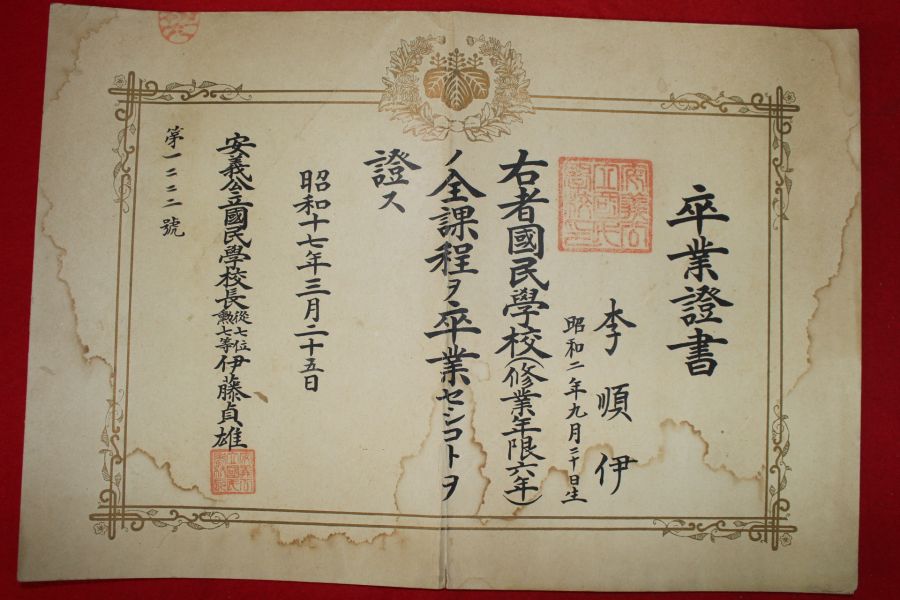 卒業證書
李順伊
昭和二年九月三十日生
右者國民學校(修業年限六年)
ノ全課程ヲ卒業セシコトヲ
證ス
昭和十七年三月二十五日
安義公立國民學校長從七位勲七等伊藤貞雄
第一二三二號